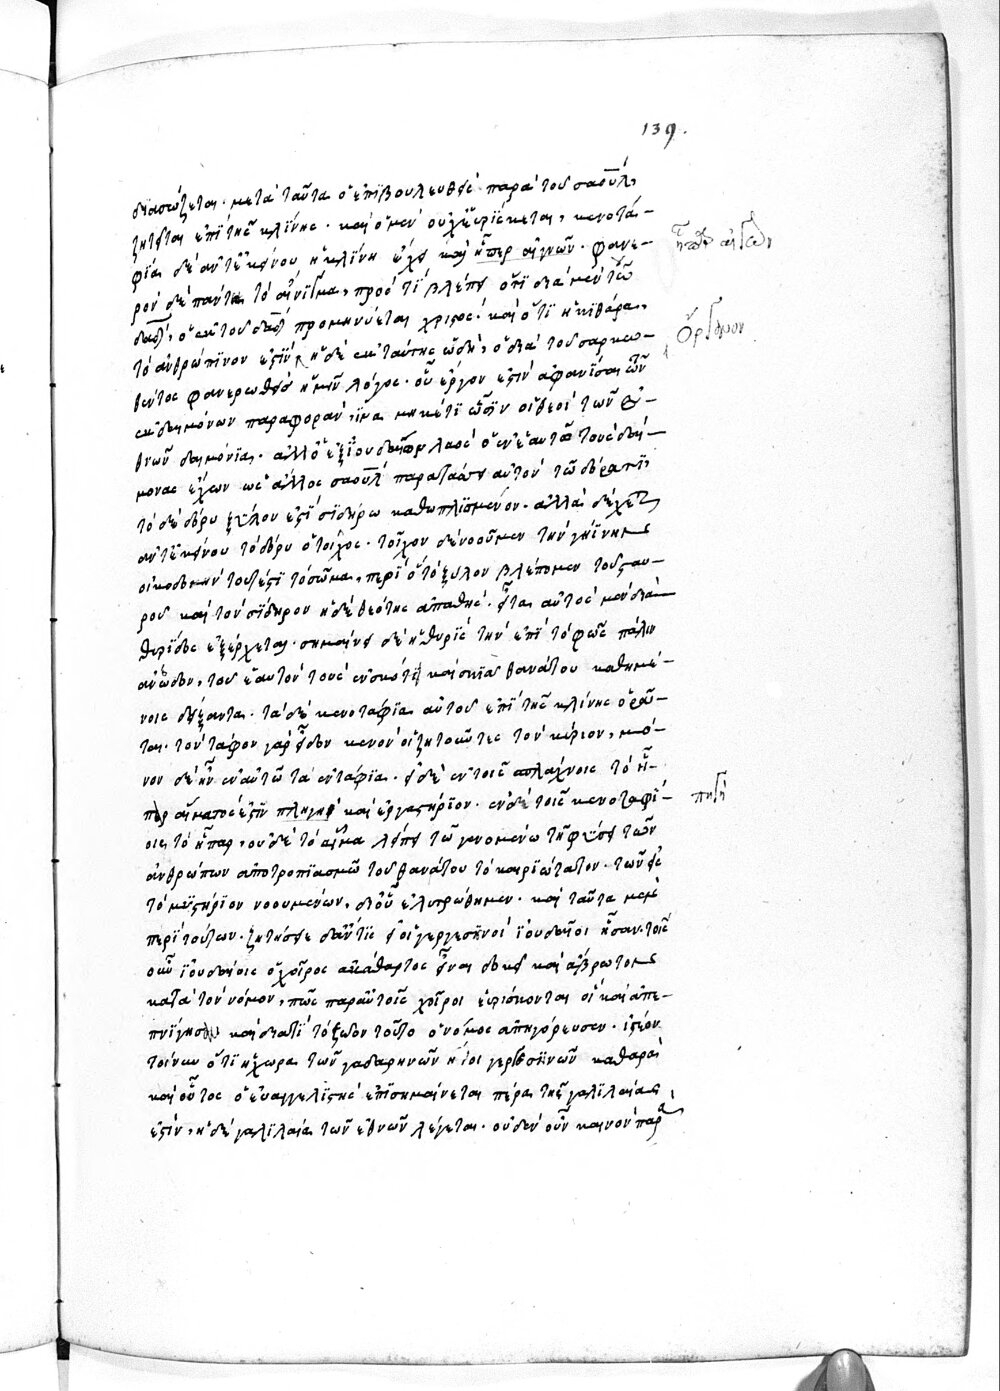 139.
διασώζεται· μετὰ ταῦτα ὁ ἐπιβουλευθεὶς παρὰ τοῦ σαοὺλ,
ζητεῖται ἐπὶ τῆς κλίνης· καὶ ὁ μὲν οὐχ εὑρίσκεται, κενοτά-
φια δὲ ἀντ' ἐκείνου ἡ κλίνη ἔχει καὶ ἧπερ αἰγῶν· φανε-
ρὸν δὲ πάντως τὸ αἴνιγμα, πρὸς τί βλέπει ὅτι διὰ μὲν τοῦ
δαδ, ὁ ἐκ τοῦ δαδ προμηνύεται χριστός· καὶ ὅτι ἡ κιθάρα,
τὸ ἀνθρώπινον ἐστὶν, ἡ δὲ ἐκ ταύτης ὠδὴ, ὁ διὰ τοῦ σαρκω-
θέντος φανερωθεὶς ἡμῖν λόγος· οὗ ἔργον ἐστὶν ἀφανίσαι τὴν
ἐκ δαιμόνων παραφορὰν, ἵνα μηκέτι ὦσιν οἱ θεοὶ τῶν ἐ-
θνῶν δαιμόνια· ἀλλ' ὁ ἐξ ἰουδαίων λαὸς ὁ ἐν ἑαυτῷ τοὺς δαί-
μονας ἔχων ὡς ἄλλος σαοὺλ παρατάσσει αὐτὸν τῷ δόρατι·
τὸ δὲ δόρυ ξύλον ἐστὶ σιδήρω καθωπλισμένον· ἀλλὰ δέχεται
ἀντ' ἐκείνου τὸ δόρυ ὁ τοῖχος· τοῖχον δὲ νοοῦμεν τὴν γηΐνην
οἰκοδομὴν τουτέστι τὸ σῶμα, περὶ ὃ τὸ ξύλον βλέπομεν τοῦ σταυ-
ροῦ καὶ τὸν σίδηρον ἡ δὲ θεότης ἀπαθὴς· εἶτα αὐτὸς μὲν διὰ
θυρίδος ἐξέρχεται· σημαίνει δὲ ἡ θυρὶς τὴν ἐπὶ τὸ φῶς πάλιν
ἄνοδον, τοῦ ἑαυτὸν τοῖς ἐν σκότει καὶ σκιᾶ θανάτου καθημέ-
νοις δείξαντα· τὰ δὲ κενοτάφια αὐτοῦ ἐπὶ τῆς κλίνης ὁρᾶ-
ται· τὸν τάφον γὰρ εἶδεν κενὸν οἱ ζητοῦντες τὸν κύριον, μό-
νον δὲ ἦν ἐν αὐτῶ τὰ ἐντάφια· εἰ δὲ ἐν τοῖς σπλάχνοις τὸ ἧ-
παρ αἵματος ἐστὶν πληγὴ καὶ ἐργαστήριον· ἐν δὲ τοῖς κενοταφί-
οις τὸ ἧπαρ, οὐδὲ τὸ αἷμα λείπει τῶ γενομένω τῆ φύσει τῶν
ἀνθρώπων ἀποτροπιασμῶ τοῦ θανάτου τὸ καιριώτατον· τῶν εἰς
τὸ μυστήριον νοουμένων, δι' οὗ ἐλυτρώθημεν· καὶ ταῦτα μὲν
περὶ τούτων· ζητήσειε δ' ἄν τις εἰ οἱ γεργεσηνοὶ ἰουδαῖοι ἦσαν· τοῖς
οὖν ἰουδαίοις ὁ χοῖρος ἀκάθαρτος εἶναι δοκεῖ καὶ ἄβρωτος
κατὰ τὸν νόμον, πῶς παρ' αὐτοῖς χοῖροι εὑρίσκονται οἳ καὶ ἀπε-
πνίγησαν καὶ διατί τὸ ζῶον τοῦτο ὁ νόμος ἀπηγόρευσεν· ἰστέον
τοίνυν ὅτι ἡ χώρα τῶν γαδαρηνῶν ἤτοι γεργεσηνῶν καθαρὰ
καὶ οὗτος ὁ εὐαγγελιστὴς ἐπισημαίνεται πέρα τῆς γαλιλαίας
ἐστὶν, ἡ δὲ γαλιλαία τῶν ἐθνῶν λέγεται· οὐδὲν οὖν καινὸν παρ'
ὄργανον
πηγὴ